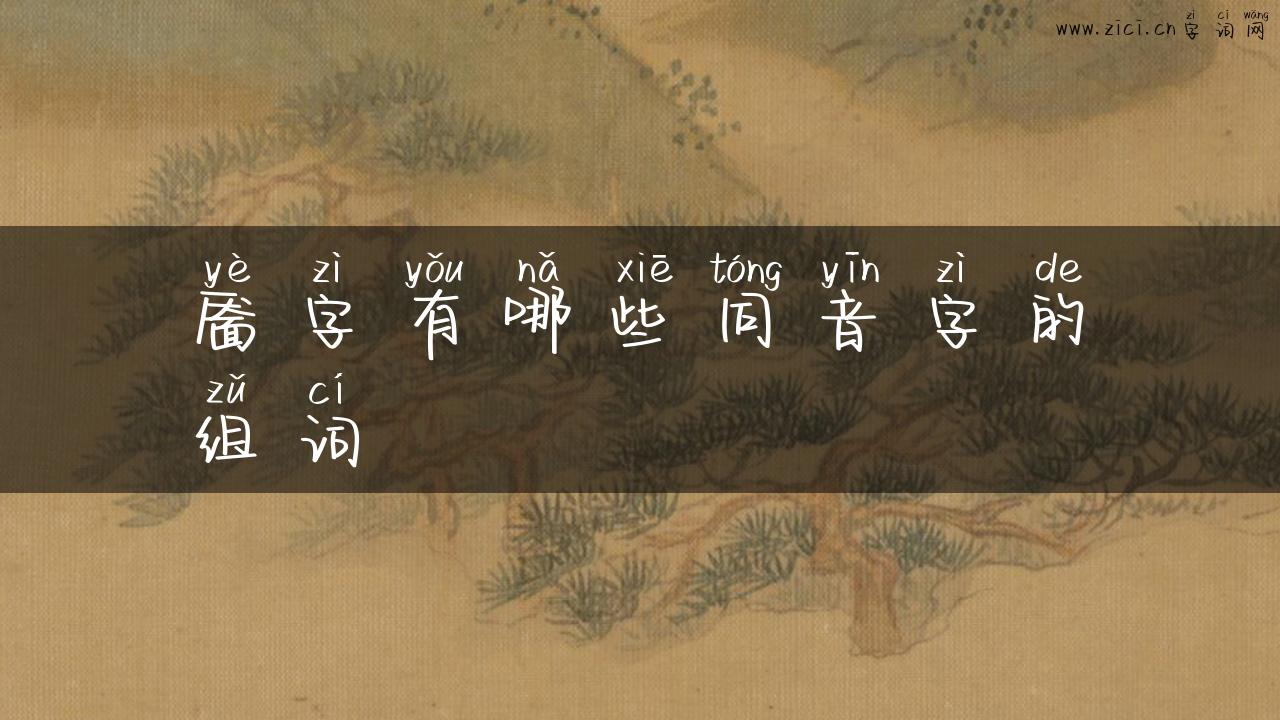 zì cí wǎng
www.zici.cn字词网
yè zì yǒu nǎ xiē tóng yīn zì de
靥字有哪些同音字的
zǔ cí
组词